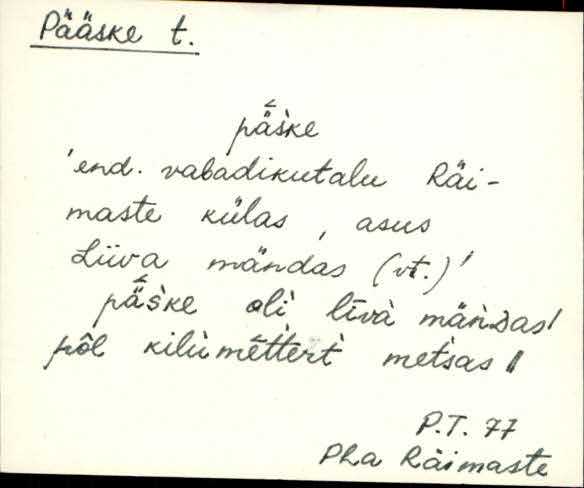 Pääske t.
pä̆̄s̀ke
'end. vabadikutalu Räi-
maste külas, asus
Liiva mändas (vt.)'
pä̆̄s̀ke oli līvà mäǹDas/
pōl kilùmēttert̀ met̀sas //
P.T. 77
Pha Räimaste